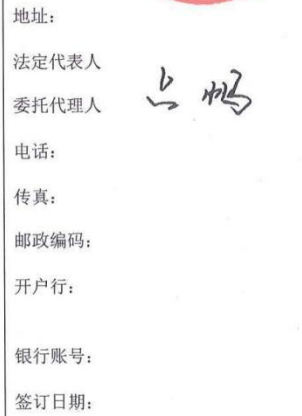 地址：
法定代表人
委托代理人
电话：
传真：
邮政编码：
开户行：
银行账号：
签订日期：